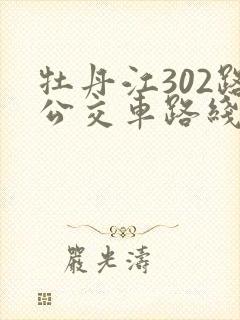 牡丹江302路
公交車路綫
嚴光濤